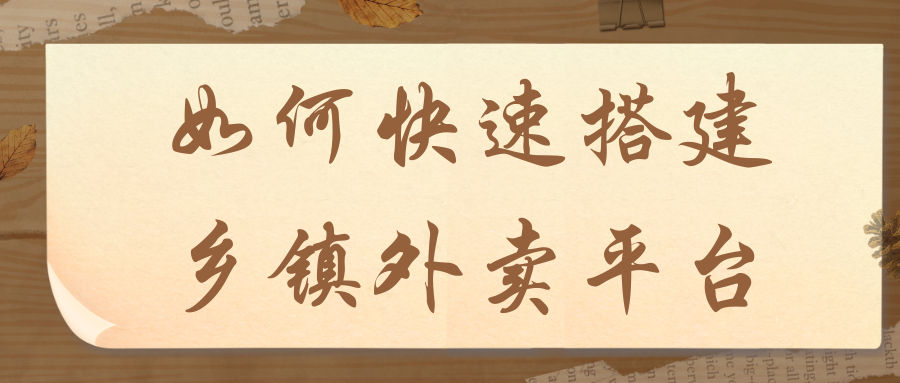 如何快速搭建
乡镇外卖平台